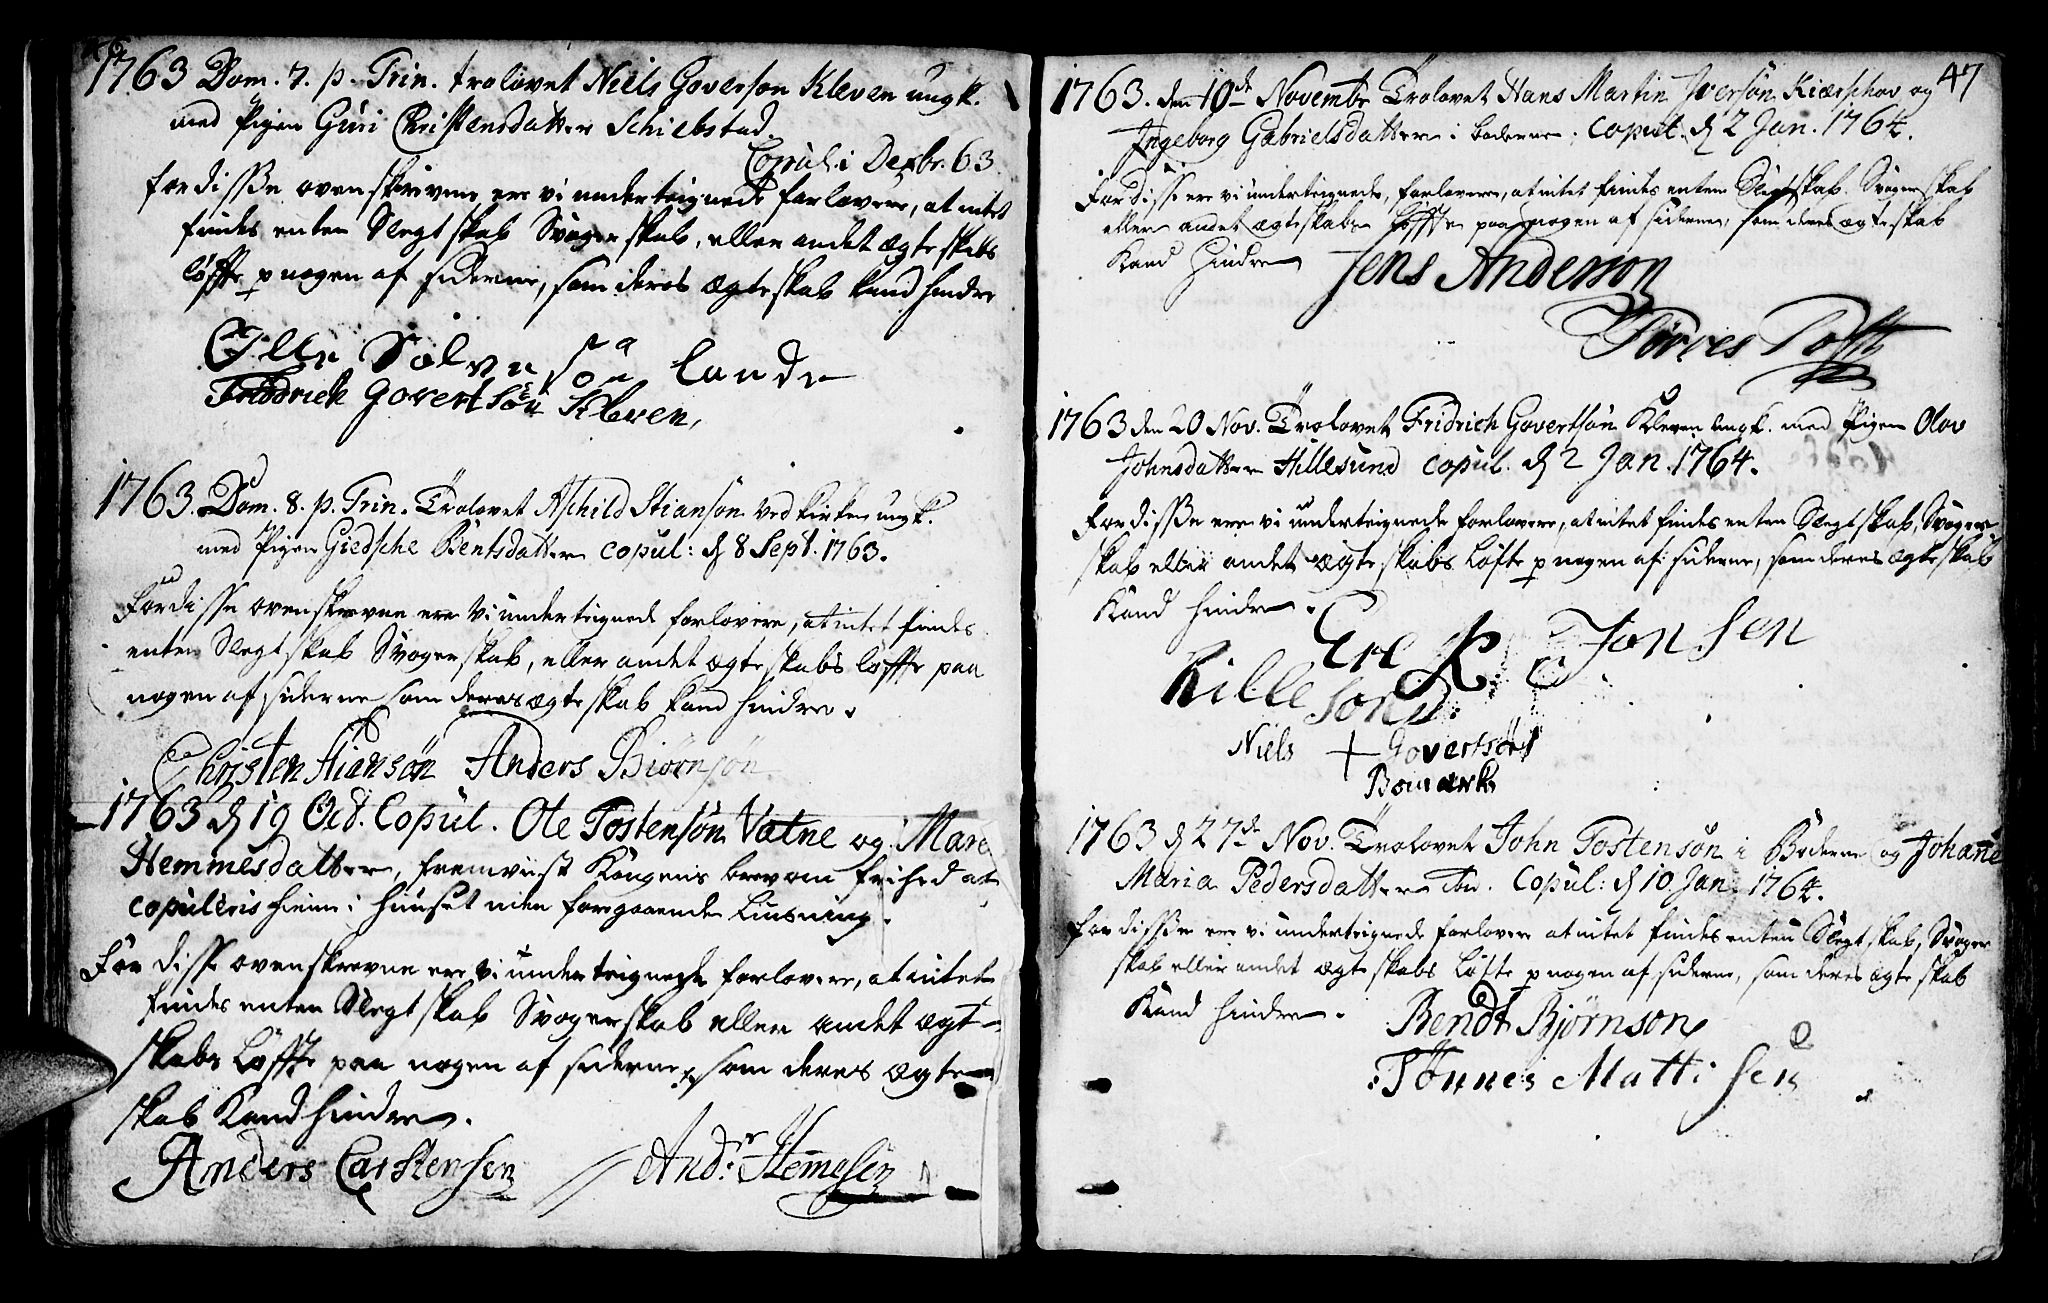 46
1763 Dom. 7. p. Trin. trolovet Niels Goverson Kleven ungk.
med Pigen Guri Christensdatter Schiebstad.
Copul. i Decbr. 63.
for disse ovenskrevne ere vi undertegnede forlovere, at intet
findes enten Slegtskab Svogerskab, eller andet ægteskabs
løffte p nogen af siderne, som deres ægteskab kand hindre
Solvensøn Lande
Fridrich Govertsøn Kleven,
1763. Dom. 8. p. Trin. Trolovet Aschild Stiansøn ved kirken ungk.
med Pigen Giedsche Bentsdatter copul: d 8 Sept. 1763.
For disse ovenskrevne ere vi undertegnede forlovere, at intet findes
enten Slegtskab Svogerskab, eller andet ægteskabs løffte paa
nogen af siderne som deres ægteskab kand hindre.
Christen Stiansøn Anders Biørnsøn
1763 d 19 Oct. Copul. Ole Tostensøn Vatne og Maren
Hemmesdatter, fremviist Kongens brev om frihed at
copuleris hieme i huuset uden foregaaende Liusning.
For disse ovenskrevne ere vi undertegnede forlovere, at intet
findes enten Slegtskab Svogerskab eller andet ægte-
skabs Løffte paa nogen af siderne, som deres ægte-
skab Kand hindre.
Anders Carstensen Andr. Hemesen
47
1763. den 10de Novembr Trolovet Hans Martin Iversøn Kiærschov og
Ingeborg Gabrielsdatter i boderne. copul. d 2 Jan. 1764.
For disse ere vi undertegnede, forlovere, at intet findes enten Slegtskab. Svogerskab
eller andet ægteskabs Løffte paa nogen af siderne, som deres ægteskab
Kand hindre
Jens Anderson
1763 den 20 Nov. Trolovet Fridrich Govertsøn Kleven ungk. med Pigen Olov
Johnsdatter Hillesund copul. d 2 Jan. 1764.
For disse ere vi undertegnede forlovere, at intet findes enten Slegtskab, Svoger-
skab eller andet ægteskabs Løfte p nogen af siderne, som deres ægteskab
Kand hindre.
Jonsen
Niels + Govertsøns
Bomærk
1763 d 27de Nov. Trolovet John Tostensøn i Boderne og Johanne
Maria Pedersdatter ibn. Copul: d 10. Jan. 1764.
for disse ere vi undertegnede forlovere at intet findes enten Slegtskab, Svoger
skab eller andet ægteskabs Løfte p nogen af siderne, som deres ægteskab
Kand hindre.
Bendt Bjørnson
Tønnes Mattisen